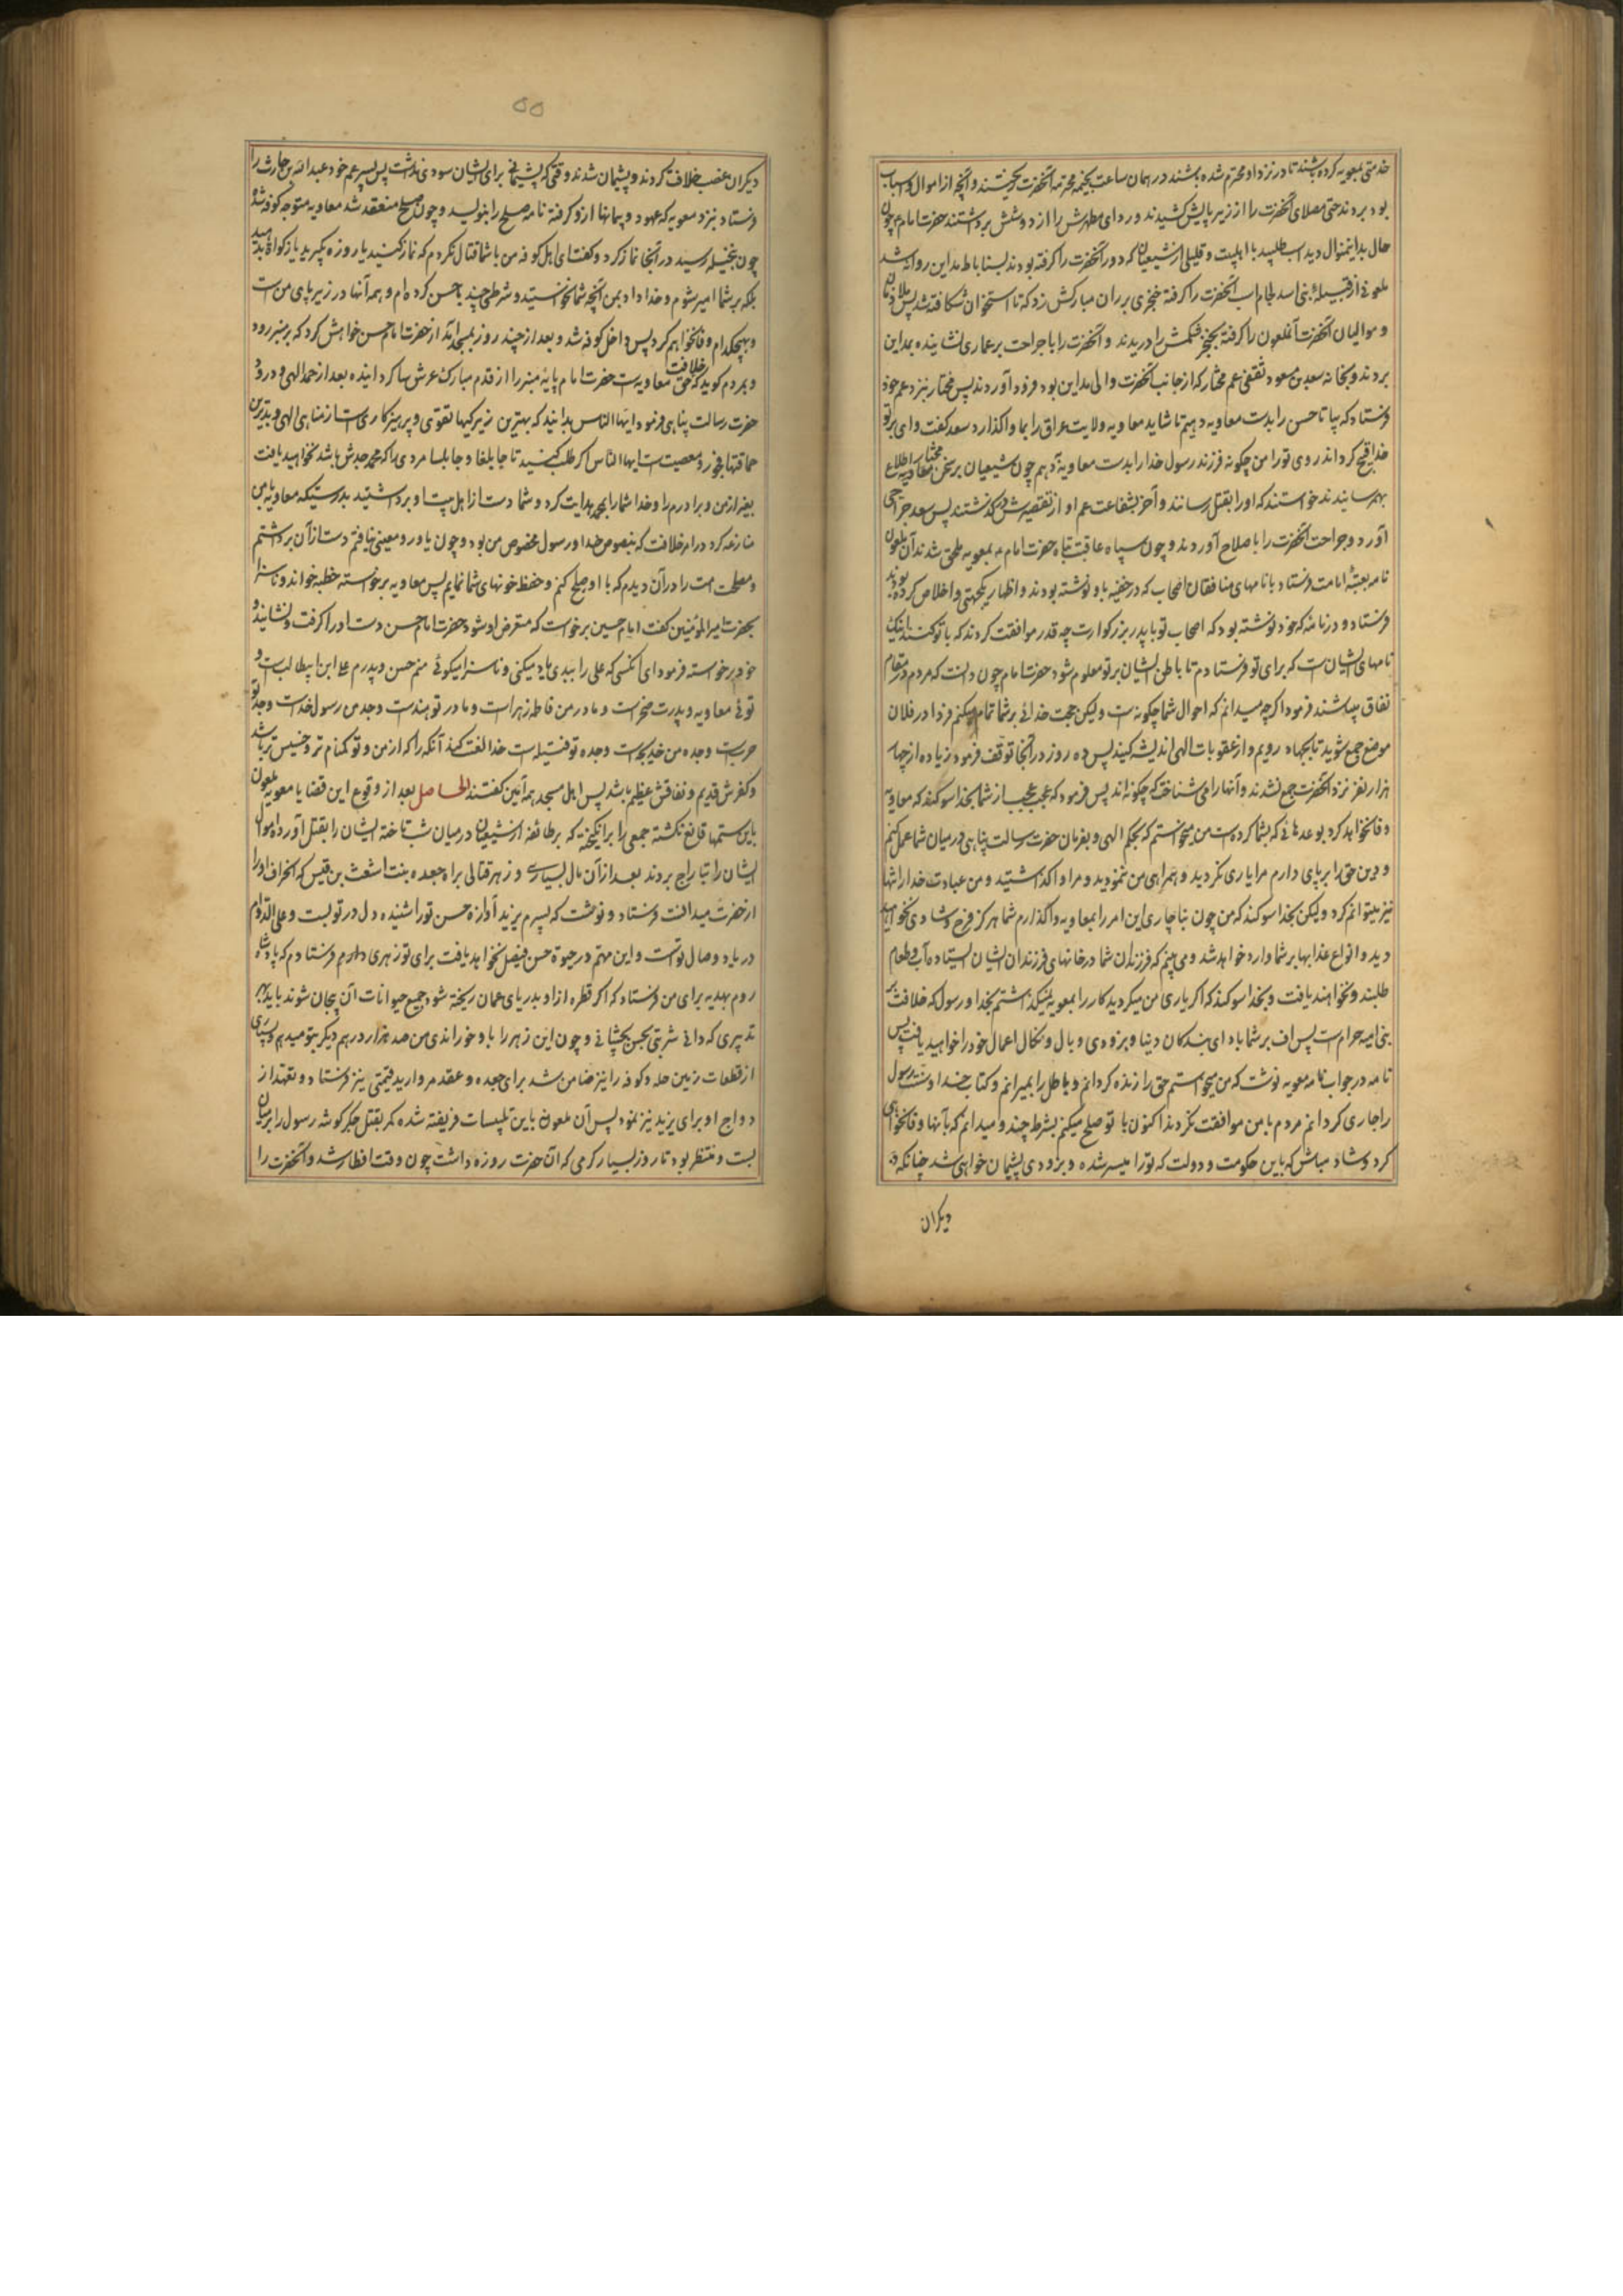 خدمتی بمعویه کرده باشند تا در نزد او محترم شده باشند در همان ساعت بخیمه محترمه آنحضرت ریختند و آنچه از اموال و اسباب
بود بردند حتی مصلای آنحضرت را از زیر پایش کشیدند و ردای مطهرش را از دوشش برداشتند حضرت امام چون
حال بدانمنوال دید اسب طلبید با اهلبیت و قلیلی از شیعیان که دور آنحضرت را گرفته بودند بساباط مداین روانه شد
ملعونی از قبیله بنی اسد لجام اسب آنحضرت را گرفته خنجری بر ران مبارکش زد که تا استخوان شکافته شد پس
و موالیان آنحضرت آنملعون را گرفته بخنجر شکمش را دریدند و آنحضرت را با جراحت بر عماری نشاینده بمداین
بردند و بخانه سعد بن مسعود ثقفی عم مختار که از جانب آنحضرت والی مداین بود فرود آوردند پس مختار بنزد عم خود
فرستاد که بیا تا حسن را بدست معاویه دهیم تا شاید معاویه ولایت عراق را بما واگذارد سعد گفت وای بر تو
خدا قبیح گرداند روی تو را من چگونه فرزند رسول خدا را بدست معاویه دهم چون شیعیان بر سخن مختار اطلاع
بهم رسانیدند خواستند که او را بقتل رسانند و آخر بشفاعت عم او از تقصیرش در گذشتند پس سعد جراحی
آورد و جراحت آنحضرت را باصلاح آوردند و چون سپاه عاقبت تباه حضرت امام بمعویه ملحق شدند آن ملعون
نامه بعتبه امامت فرستاد با نامهای منافقان اصحاب که در خفیه باو نوشته بودند و اظهار یکجهتی و اخلاص کرده بودند
فرستاد و در نامه که خود نوشته بود که اصحاب تو با پدر بزرگوارت چه قدر موافقت کردند که با تو کنند اینک
نامهای ایشانست که برای تو فرستادم تا باطن ایشان بر تو معلوم شود حضرت امام چون دانست که مردم در مقام
نفاق میباشند فرمود اگرچه میدانم که احوال شما چگونه است ولیکن حجت خدائی بر شما تمام میکنم فردا در فلان
موضع جمع شوید تا بجهاد رویم و از عقوبات الهی اندیشه کنید پس ده روز در آنجا توقف فرمود زیاده از چهار
هزار نفر نزد آنحضرت جمع نشدند و آنها را می شناخت که چگونه اند پس فرمود که عجب عجب از شما بخدا سوگند که معاویه
وفا نخواهد کرد بوعدهائی که بشما کرده است من میخواستم که بحکم الهی و بفرمان حضرت رسالت پناهی در میان شما عمل کنم
و دین حق را برپای دارم مرا یاری نکردید و همراهی من ننمودید و مرا واگذاشتید و من عبادت خدا را تنها
نیز میتوانم کرد ولیکن بخدا سوگند که من چون بناچاری این امر را بمعاویه واگذارم شما هرگز فرح و شادی نخواهید
دید و انواع عذابها بر شما وارد خواهد شد و می بینم که فرزندان شما در خانهای فرزندان ایشان ایستاده آب و طعام
طلبند و نخواهند یافت و بخدا سوگند که اگر یاری من میکردید کار را بمعویه نمیگذاشتم بخدا و رسول که خلافت بر
بنی امیه حرام است پس اف بر شما باد ای بندگان دنیا و بزودی وبال و نکال اعمال خود را خواهید یافت پس
نامه در جواب نامه معویه نوشت که من میخواستم حق را زنده گردانم و باطل را بمیرانم و کتاب خدا و سنت رسول
را جاری گردانم مردم با من موافقت نکردند اکنون با تو صلح میکنم بشرط چند و میدانم که بآنها وفا نخواهی
کرد و شاد مباش که باین حکومت و دولت که ترا میسر شده و بزودی پشیمان خواهی شد چنانکه
دیکران
۵۵
دیکران غصب خلافت کردند و پشیمان شدند وقتی که پشیمانی برای ایشان سودی نداشت پس پسر عم خود عبدالله بن حارث را
فرستاد بنزد معویه که عهود و پیمانها ازو گرفته نامه صلح را بنویسد و چون صلح منعقد شد معاویه متوجه کوفه شد
چون بنخیله رسید در آنجا نماز کرد و گفت ای اهل کوفه من با شما قتال نکردم که نماز کنید یا روزه بگیرید یا زکوة بدهید
بلکه بر شما امیر شوم و خدا داد بمن آنچه شما نخواستید و شرطی چند با حسن کرده ام و همه آنها در زیر پای من است
و بهیچکدام وفا نخواهم کرد پس داخل کوفه شد و بعد از چند روز بمسجد آمد از حضرت امام حسن خواهش کرد که بر منبر رود
و بمردم گوید که حق خلافت معاویه است حضرت امام پایه منبر را از قدم مبارک عرش سا گردانیده بعد از حمد الهی و درود
حضرت رسالت پناهی فرمود ایها الناس بدانید که بهترین زیرکیها تقوی و پرهیزکاریست از مناهی الهی و بدترین
حماقتها فجور و معصیت است ایها الناس اگر طلب کنید تا جابلقا و جابلسا مردی را که محمد جدش باشد نخواهید یافت
بغیر از من و برادرم را و خدا شما را بمحمد هدایت کرد و شما دست از اهل بیت او برداشتید بدرستیکه معاویه با من
منازعه کرد در امر خلافت که بنصوص خدا و رسول مخصوص من بود و چون یاور و معینی نیافتم دست از آن برداشتم
و مصلحت امت را در آن دیدم که با او صلح کنم و حفظ خونهای شما نمایم پس معاویه برخواسته خطبه خواند و ناسزا
بحضرت امیر المؤمنین گفت امام حسین برخواست که متعرض او شود حضرت امام حسن دست او را گرفت و نشانید و
خود برخواسته فرمود ای آنکسی که علی را ببدی یاد میکنی و ناسزا میگوئی منم حسن و پدرم علی ابن ابیطالب است و
توئی معاویه و پدرت صخر است و مادر من فاطمه زهراست و مادر تو هند است و جد من رسول خداست و جد تو
حربست و جده من خدیجه است و جده تو فتیله است خدا لعنت کند آنکه را که از من و تو گمنام تر و خسیس تر باشد
و کفرش قدیم و نفاقش عظیم باشد پس اهل مسجد همه آمین گفتند الحاصل بعد از وقوع این قضایا معویه ملعون
باین ستمها قانع نگشته جمعی را برانگیخته که بر طائفه از شیعیان در میان شب تاخته ایشان را بقتل آورده اموال
ایشان را بتاراج بردند بعد از آن مال بسیاری و زهر قتالی براه جعده بنت اشعث بن قیس که انحراف او را
از حضرت میدانست فرستاد و نوشت که پسرم یزید آوازه حسن تو را شنیده دل در تو بست و علی الدوام
در یاد وصال توست و این مهم در حیوة حسن فیصل نخواهد یافت برای تو زهری دارم فرستادم که پادشاه
روم بهدیه برای من فرستاد که اگر قطره از او بدریای عمان ریخته شود جمیع حیوانات آن بیجان شوند باید بهر
تدبیری که دانی شربتی بحسن بچشانی و چون این زهر را باو خوراندی من صد هزار درهم دیگر بتو میدهم و بسیاری
از قطعات زمین حله و کوفه را نیز ضامن شد برای جعده و عقد مروارید قیمتی نیز فرستاد و تعهد از
دواج او برای یزید نیز نمود پس آن ملعونه باین تلبیسات فریفته شده کمر بقتل جگر گوشه رسول را بر میان
بست و منتظر بود تا روز بسیار گرمی که آن حضرت روزه داشت چون وقت افطار شد و آنحضرت را